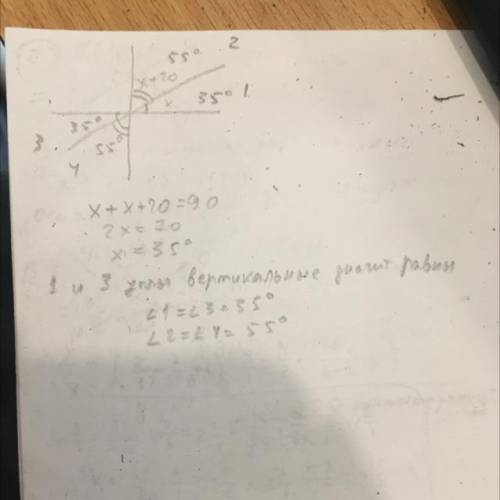 55° 2
x+20
x 35° 1
35°
3 55°
4
x+x+20=90
2x=70
x=35°
1 и 3 углы вертикальные значит равны
∠1=∠3=35°
∠2=∠4=55°